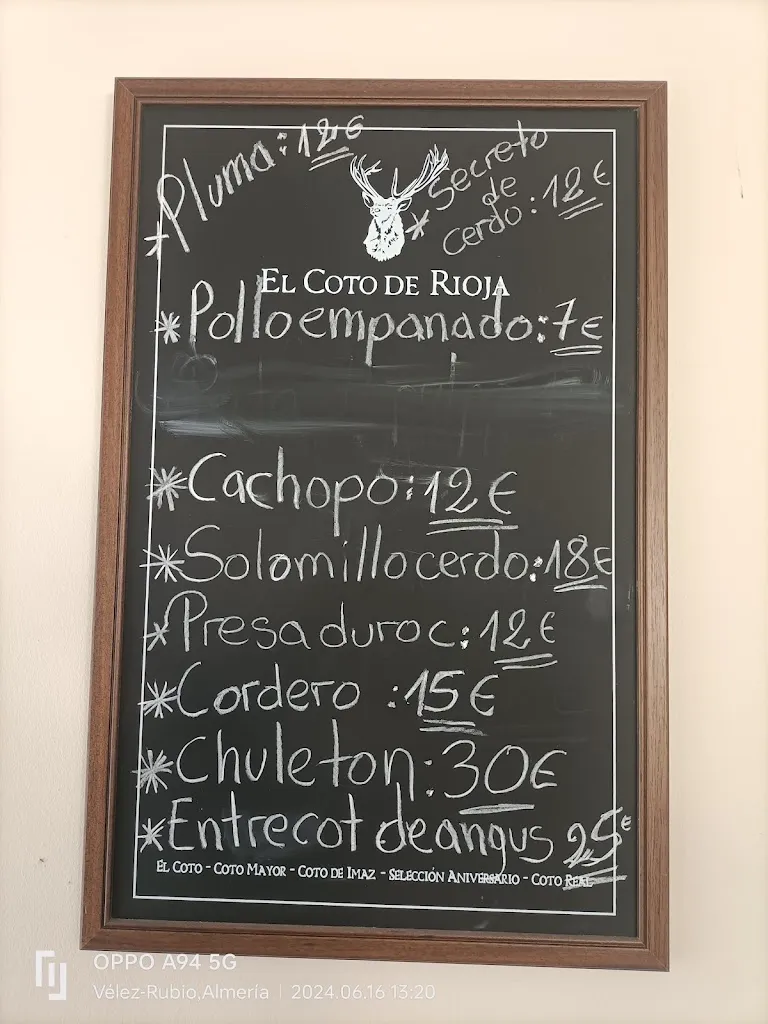 * Pluma: 12€
* Secreto
de
cerdo: 12€
EL COTO DE RIOJA
* Pollo empanado: 7€
* Cachopo: 12€
* Solomillo cerdo: 18€
* Presa duroc: 12€
* Cordero : 15€
* Chuleton: 30€
* Entrecot de angus 25€
EL COTO - COTO MAYOR - COTO DE IMAZ - SELECCIÓN ANIVERSARIO - COTO REAL
OPPO A94 5G
Vélez-Rubio,Almería | 2024.06.16 13:20